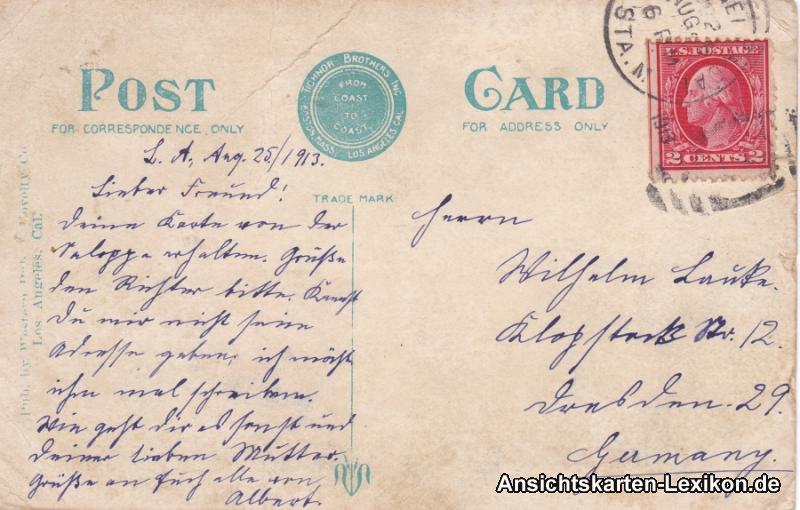 POST CARD
FOR CORRESPONDENCE ONLY
FOR ADDRESS ONLY
TICHNOR BROTHERS INC.
BOSTON, MASS. LOS ANGELES, CAL.
FROM
COAST
TO
COAST
TRADE MARK
U.S. POSTAGE
2 CENTS 2
STA. N
AUG
Pub. by Western Pub. & Novelty Co.
Los Angeles, Cal.
L. A., Aug. 25/1913.
Lieber Freund!
Deine Karte von der
Saloppe erhalten. Grüße
den Richter bitte. Kannst
Du mir nicht seine
Adresse geben, ich möcht
ihm mal schreiben.
Wie geht dir es sonst und
deiner lieben Mutter.
Grüße an Euch alle von
Albert.
Herrn
Wilhelm Lauke.
Klopstock Str. 12.
Dresden. 29.
Germany.
Ansichtskarten-Lexikon.de